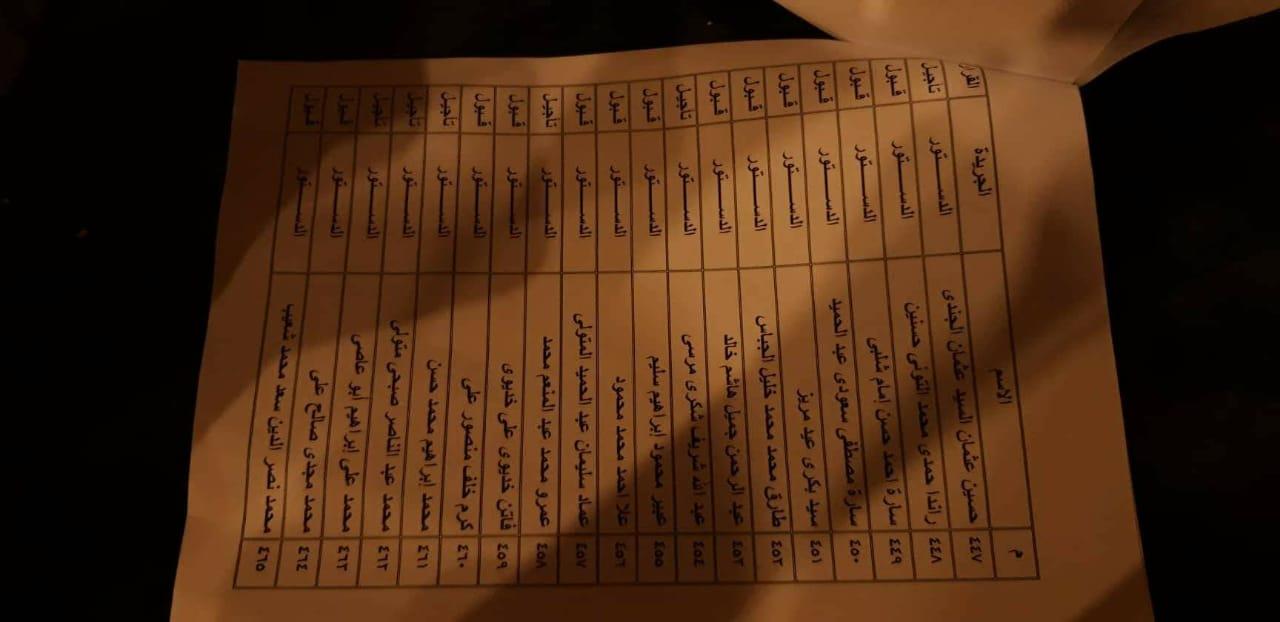 م الاسم الجريدة القرار
٤٤٧ حسين عثمان السيد عثمان الجندى الدستور تأجيل
٤٤٨ راندا حمدى محمد التونى حسنين الدستور قبول
٤٤٩ سارة احمد حسن إمام شلبى الدستور قبول
٤٥٠ سارة مصطفى سعودى عبد الحميد الدستور قبول
٤٥١ سيد بكرى عيد مريز الدستور قبول
٤٥٢ طارق محمد محمد خليل الجباس الدستور قبول
٤٥٣ عبد الرحمن جميل هاشم خالد الدستور قبول
٤٥٤ عبد الله شريف شكرى مرسى الدستور تأجيل
٤٥٥ عبير محمود إبراهيم سليم الدستور قبول
٤٥٦ علا احمد محمد محمود الدستور قبول
٤٥٧ عماد سليمان عبد الحميد المتولى الدستور قبول
٤٥٨ عمرو محمد عبد المنعم محمد الدستور تأجيل
٤٥٩ فاتن خديوى على خديوى الدستور قبول
٤٦٠ كرم خلف منصور على الدستور قبول
٤٦١ محمد إبراهيم محمد حسن الدستور تأجيل
٤٦٢ محمد عبد الناصر صبحى متولى الدستور تأجيل
٤٦٣ محمد على إبراهيم ابو عاصى الدستور تأجيل
٤٦٤ محمد مجدى صالح على الدستور قبول
٤٦٥ محمد نصر الدين سعد محمد شعيب الدستور قبول